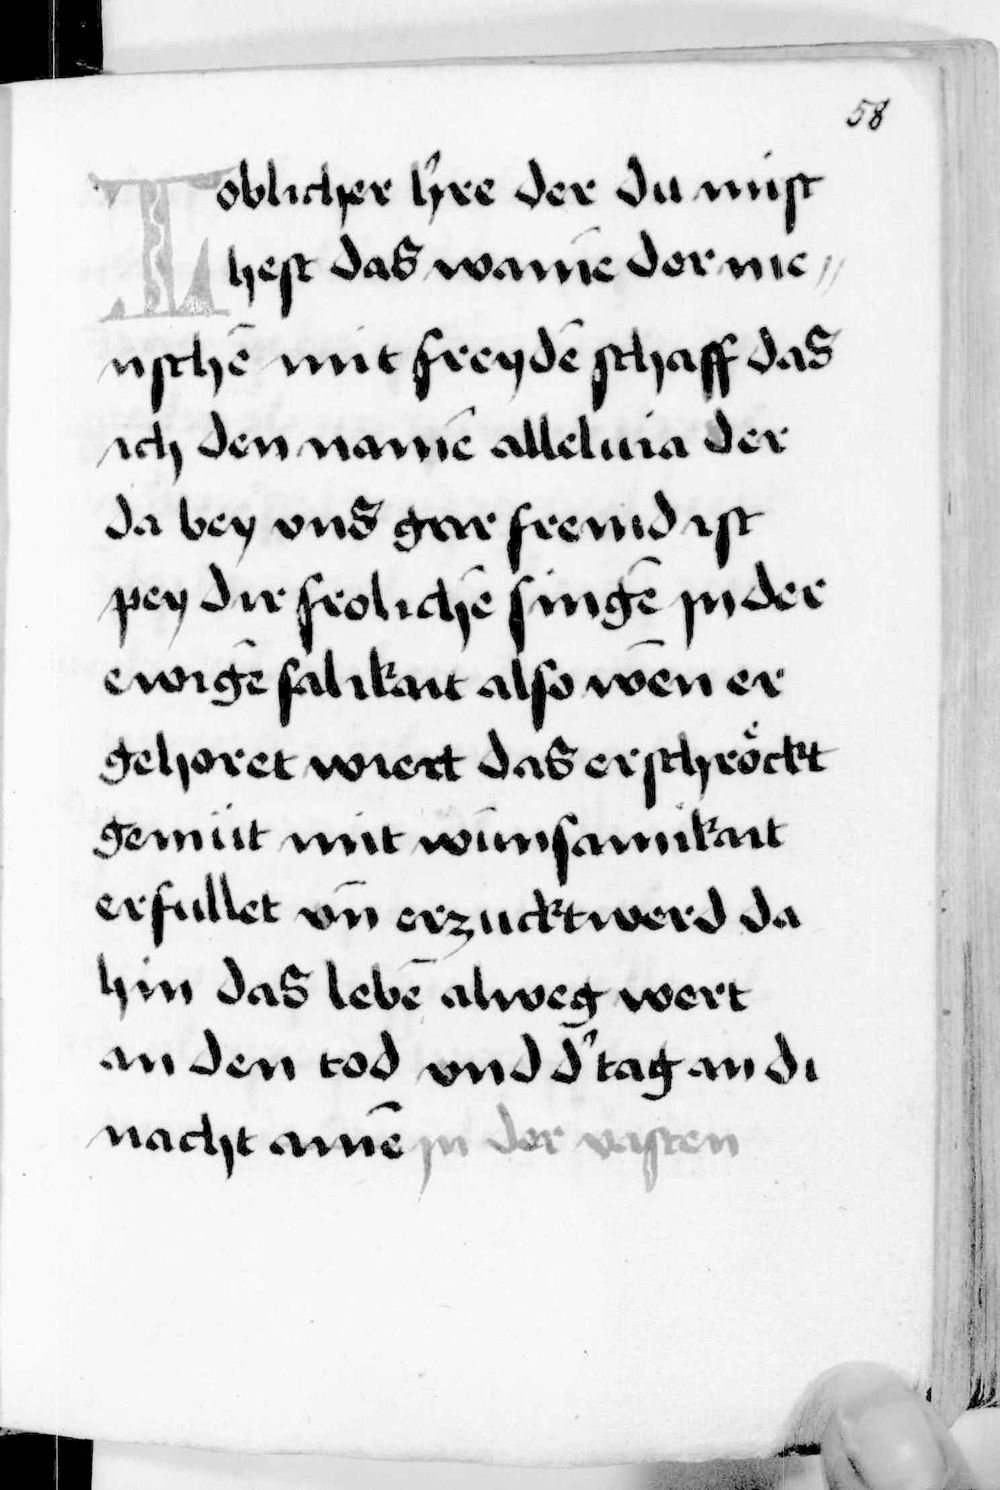 58
Loblicher h̄re der du mist
hest das wainē der me〃
nschē mit freydē schaff das
ich den namē alleluia der
da bey vns gar fremd ist
pey dir frolichē singē jn der
ewigē salikait also wēn er
gehoret wiert das erschröckt
gemüt mit wunsamikait
erfullet vn̄ erzuckt werd da
hin das lebē alweg wert
an den tod vnd d' tag an di
nacht amē jn der vasten